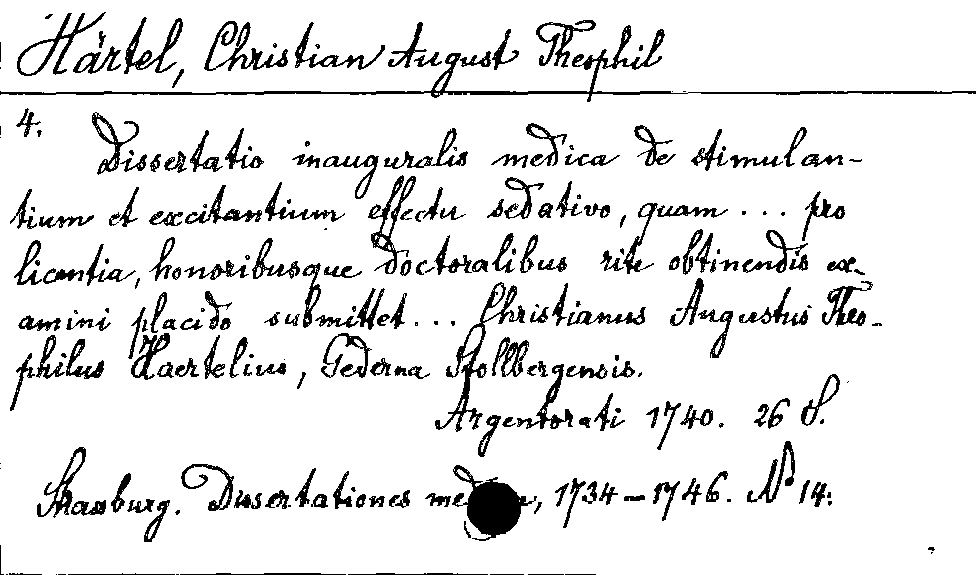 Härtel, Christian August Theophil
4.
Dissertatio inauguralis medica de stimulan-
tium et excitantium effectu sedativo, quam ... pro
licentia, honoribusque doctoralibus rite obtinendis ex-
amini placido submittet ... Christianus Augustus Theo-
philus Haertelius, Gederna Stollbergensis.
Argentorati 1740. 26 S.
Strassburg. Dissertationes , 1734-1746. No 14.